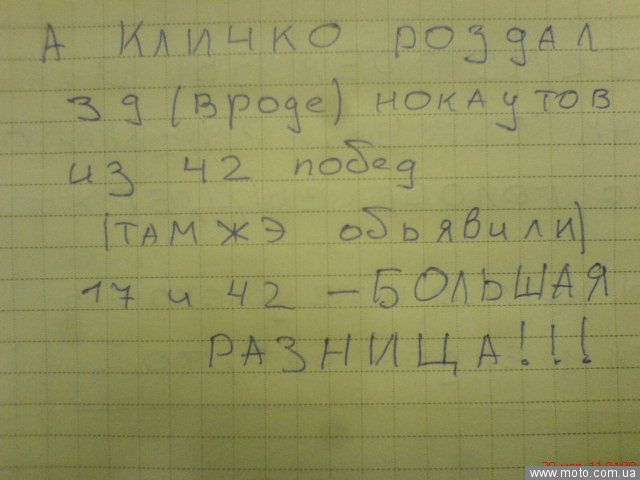 А КЛИЧКО РОЗДАЛ
39 (вроде) НОКАУТОВ
из 42 побед
(ТАМ ЖЭ обьявили)
17 и 42 - БОЛЬШАЯ
РАЗНИЦА!!!
www.moto.com.ua